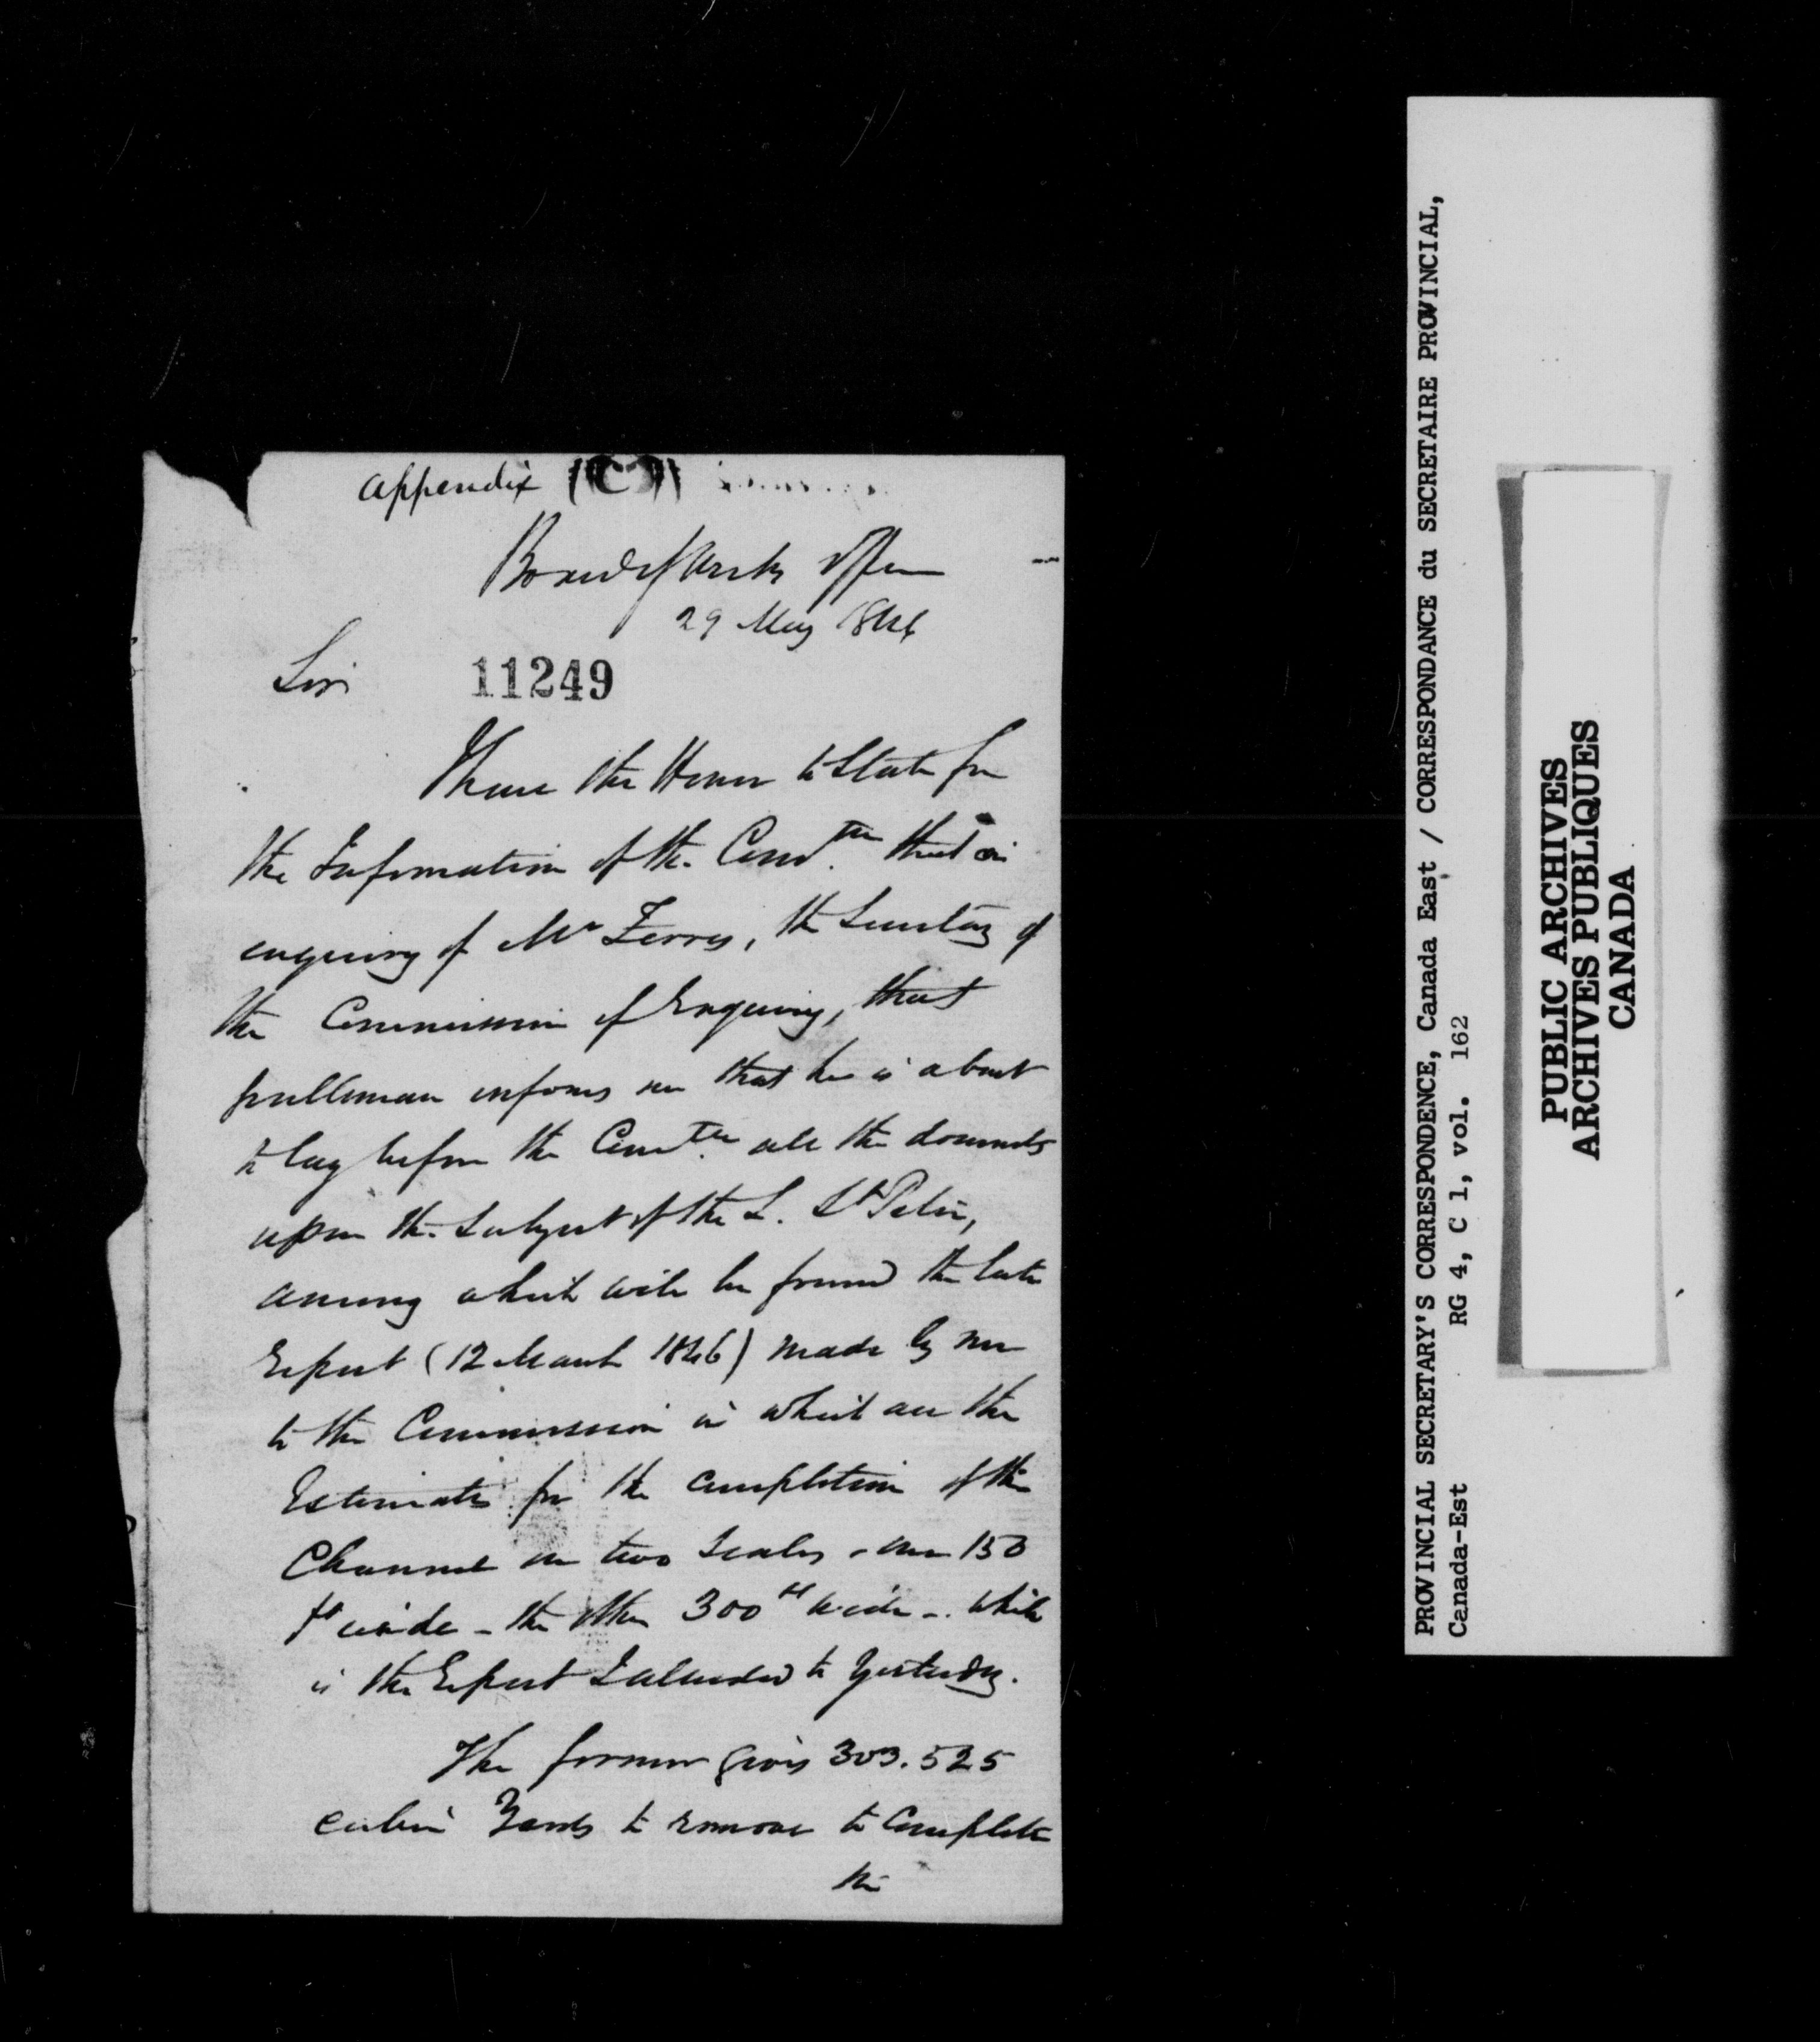 appendix (C)
Board of Works Office
29 May 1846
Sir
11249
I have the Honor to State for
the Information of the Com.tee that on
enquiry of Mr , the Secretary of
the Commission of Enquiry, that
gentleman informs me that he is about
to lay before the Com.tee all the documents
upon the Subject of the L. St Peter,
among which will be found the late
Report (12 March 1846) made by me
to the Commission in which are the
Estimates for the completion of the
Channel on two Scales - one 150
ft wide - the other 300 ft wide - which
is the Report I alluded to Yesterday.
The former gives 303.525
cubic Yards to remove to Complete
the
PROVINCIAL SECRETARY'S CORRESPONDENCE, Canada East / CORRESPONDANCE du SECRETAIRE PROVINCIAL,
Canada-Est RG 4, C 1, vol. 162
PUBLIC ARCHIVES
ARCHIVES PUBLIQUES
CANADA